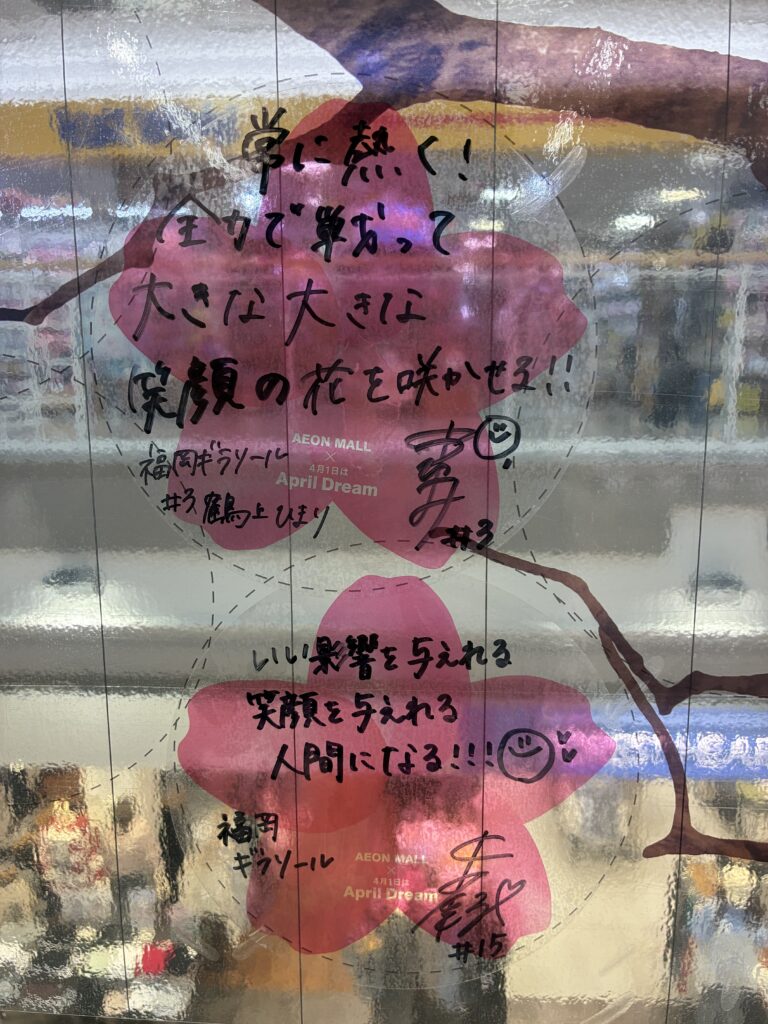 常に熱く!
全力で戦かって
大きな大きな
笑顔の花を咲かせる!!
AEON MALL
×
4月1日は
April Dream
福岡ギラソール
#3 鶴上ひまり
#3
いい影響を与えれる
笑顔を与えれる
人間になる!!!
福岡
ギラソール
AEON MALL
×
4月1日は
April Dream
#15